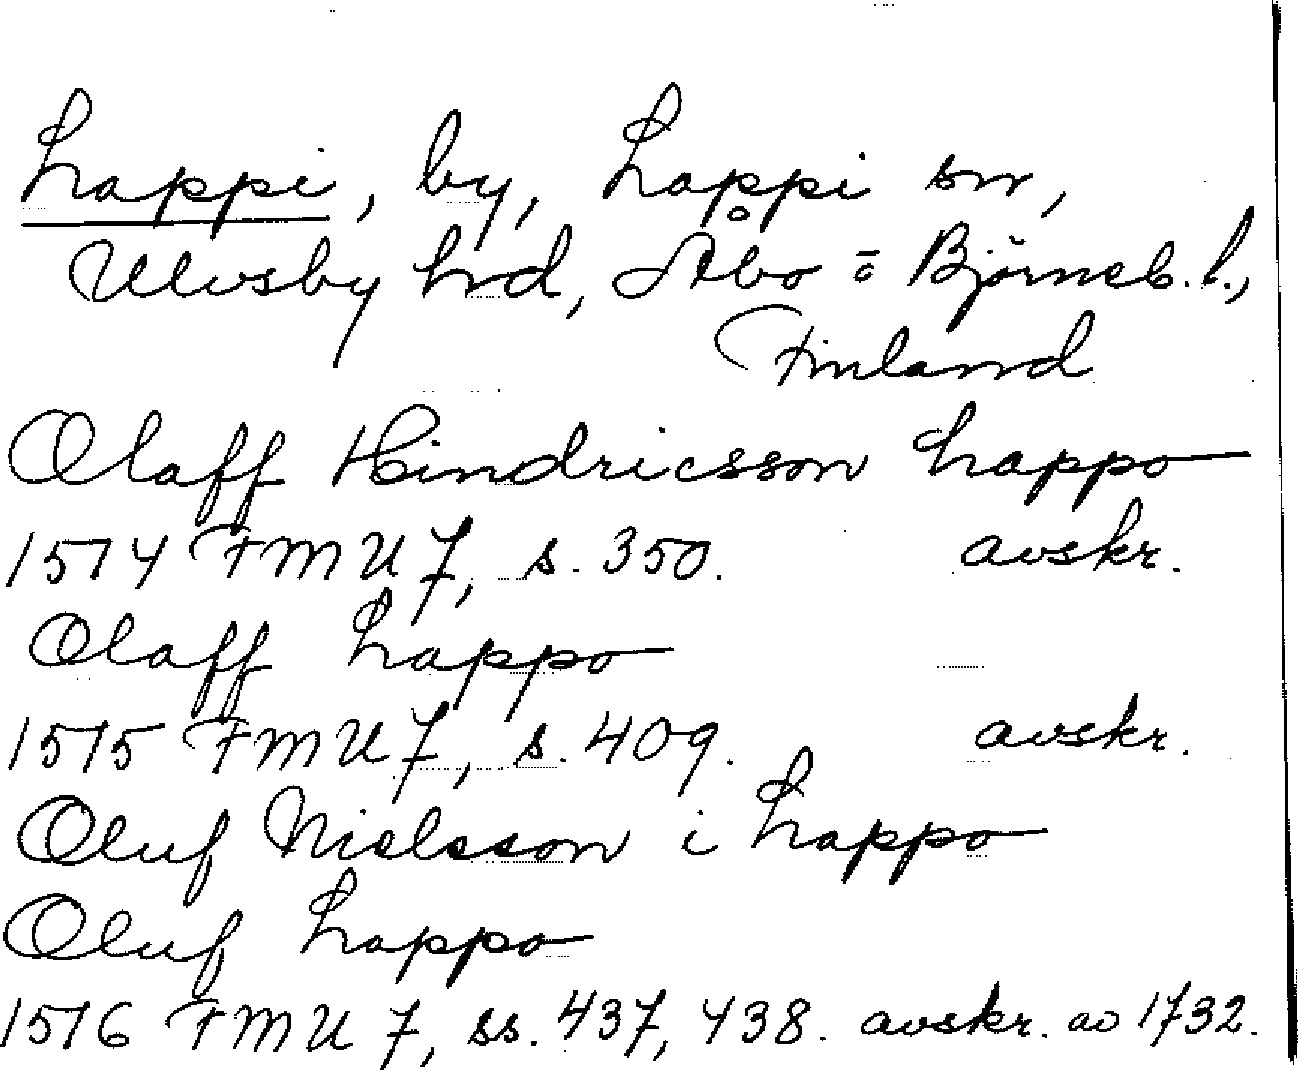 Lappi, by, Lappi sn,
Ulvsby hrd, Åbo ō Björneb. l.,
Finland
Olaff Hindricsson Lappo
1514 FMU 7, s. 350. avskr.
Olaff Lappo
1515 FMU 7, s. 409. avskr.
Oluf Nielsson i Lappo
Oluf Lappo
1516 FMU 7, ss. 437, 438. avskr. av 1732.